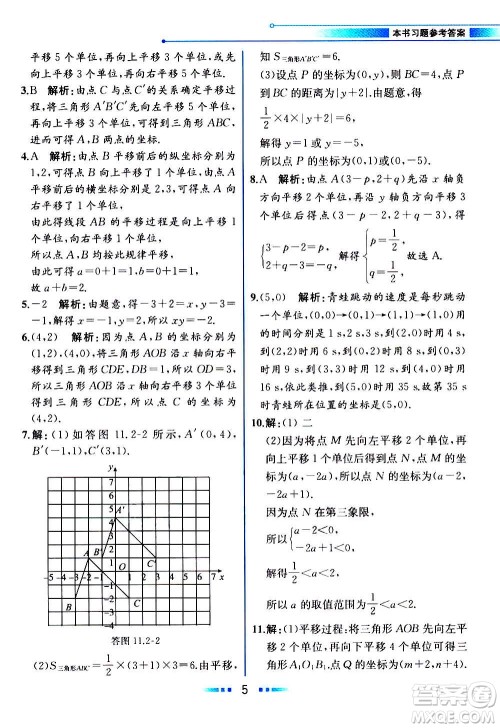 本书习题参考答案
平移5个单位,再向上平移3个单位,即先向上平移3个单位,再向右平移5个单位.
3.B 解析:由点C与点C′的关系确定平移过程,将三角形A′B′C′先向左平移2个单位,再向上平移3个单位得到三角形ABC,进而可得A,B两点的坐标.
4.A 解析:由点B平移前后的纵坐标分别为1,2,可得点B向上平移1个单位,
由点A平移前后的横坐标分别为2,3,
可得点A向右平移1个单位,
由此得线段AB的平移过程是向上平移1个单位,再向右平移1个单位,
所以点A,B均按此规律平移,
由此可得a=0+1=1,b=0+1=1.
故a+b=2.
5.-2 解析:由题意,得-3+2=x,-3+2=y,解得x=-1,y=-1,所以x+y=-2.
6.(4,2) 解析:由点A,B的坐标分别为(1,2),(2,0),将三角形AOB沿x轴向右平移得到三角形CDE,DB=1,所以OD=3.
所以三角形AOB沿x轴向右平移3个单位得到三角形CDE,所以点C的坐标为(4,2).
7.解:(1)如答图11.2-2所示,A′(0,4),B′(-1,1),C′(3,1).
y
7
6
5
4
3
2
1
A′
B′
C′
A
B
C
O
-5 -4 -3 -2 -1
1 2 3 4 5 6 7 x
-1
-2
-3
-4
答图11.2-2
(2)S三角形ABC=1/2×(3+1)×3=6.由平移,
知S三角形A′B′C′=6.
(3)设点P的坐标为(0,y),因为BC=4,点P到BC的距离为|y+2|.由题意,得
1/2×4×|y+2|=6,
解得y=1或y=-5.
所以点P的坐标为(0,1)或(0,-5).
8.A 解析:由点A(3-p,2+q)先沿x轴负方向平移2个单位,再沿y轴负方向平移3个单位,得点B(p,-q),可得
{3-p-2=p, 2+q-3=-q, 解得{p=1/2, q=1/2. 故选A.
9.(5,0) 解析:青蛙跳动的速度是每秒跳动一个单位,(0,0)→(0,1)→(1,1)→(1,0)用的时间分别是1s,2s,3s,到(2,0)用4s,到(2,2)用6s,到(0,2)用8s,到(0,3)用9s,到(3,3)用12s,到(4,0)用16s,依次类推,到(5,0)用35s.故第35s时青蛙所在位置的坐标是(5,0).
10.解:(1)二
(2)因为将点M向左平移2个单位,再向上平移1个单位得到点N,点M的坐标为(a,-2a),所以点N的坐标为(a-2,-2a+1).
因为点N在第三象限,
所以{a-2<0, -2a+1<0,
解得1/2<a<2.
所以a的取值范围为1/2<a<2.
11.解:(1)平移过程:将三角形AOB先向右平移4个单位,再向下平移2个单位得到三角形A1O1B1.点Q的坐标为(m+4,n-2).
5